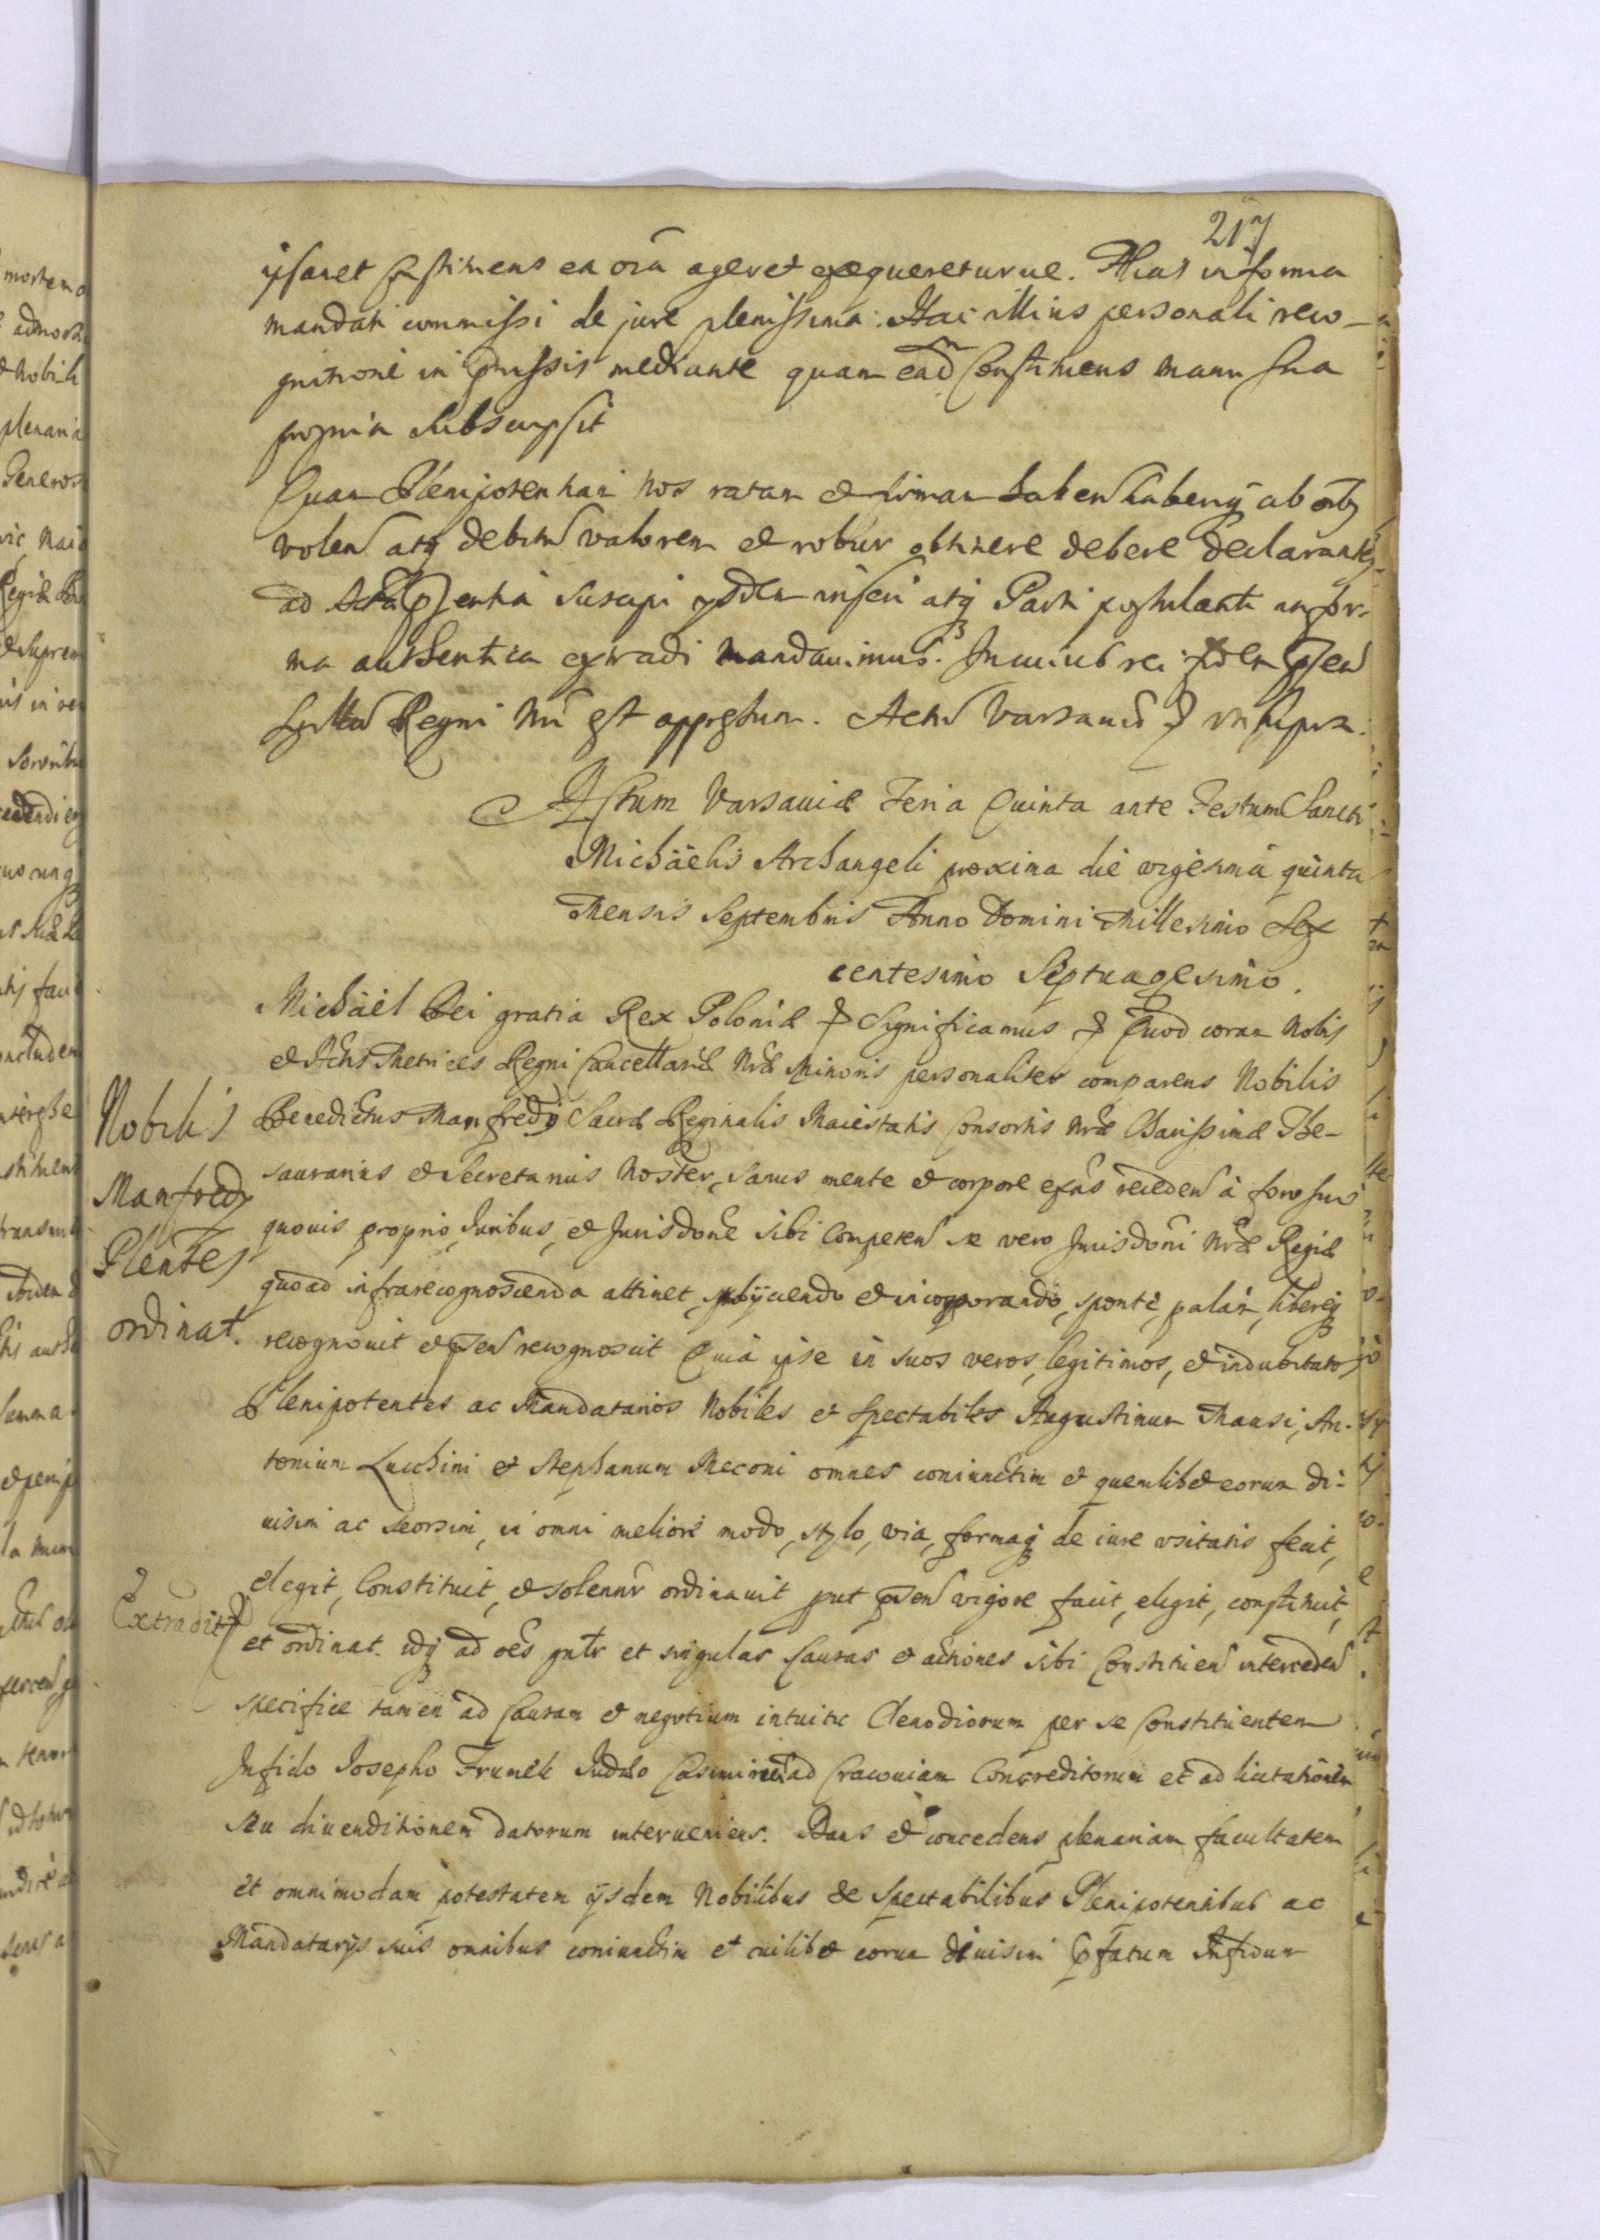 217
ipsaret Constituens ea oīa ageret exequereturue. Alias in forma
mandati commissi de jure plenissima. Hac illius personali reco-
gnitione in praemissis mediante quam ead Constituens manu sua
propria subscripsit
Quam Plenipotentiam nos ratam et firmam haberi ab oībȝ
volen atqȝ debitū valorem et robur obtinere debere declarantes
ad Acta pnsentia suscipi inseri atqȝ Parti postulanti in for-
ma authentica extradi mandauimus. In cuius rei fidem pnsen
Sigillū Regni Nrī est appressum. Actū Varsauiæ ut supra.
Actum Varsauiæ Feria Quinta ante Festum Sancti
Michaëlis Archangeli proxima die vigesima quinta
Mensis Septembris Anno Domini Millesimo Sex
centesimo Septuagesimo.
Michaël Dei gratia Rex Poloniæ Significamus Quod coram Nobis
et Actis Metrices Regni Cancellariæ Nræ Minoris personaliter comparens Nobilis
Benedictus Manfredy Sacræ Reginalis Maiestatis Consortis Nræ Charissimæ The-
saurarius et Secretarius Noster, sanus mente et corpore exñs receden à foro suo
quouis proprio, Iuribus, et Jurisdone sibi Competen se vero Jurisdoni Nræ Regiæ
quoad infrarecognoscenda attinet, subijciendo et incorporando, sponte, palàm, libereqȝ
recognouit et pnsen recognoscit Quia ipse in suos veros, legitimos, et indubitatos
Plenipotentes ac Mandatarios Nobiles et Spectabiles Augustinum Mansi, An-
tonium Lucchini et Stephanum Meconi omnes coniunctim et quemlibet eorum di-
uisim ac seorsim, in omni meliori modo, stylo, via, formaqȝ de iure usitatis fecit,
elegit, Constituit, et solennr ordinauit put pnsen vigore facit, eligit, constituit,
et ordinat. idqȝ ad oēs gnlr et singulas Causas et actiones sibi Constituen interceden
specifice tamen ad Causam et negotium intuitu Clenodiorum per se Constituentem
Infido Josepho Frumek Iudæo Casimiriē ad Cracouiam Concreditorum et ad licitationem
seu diuenditionem datorum interueniens. Dans et concedens plenariam facultatem
et omnimodam potestatem ijsdem Nobilibus et Spectabilibus Plenipotentibus ac
Mandatarijs suis omnibus coniunctim et cuilibet eorum diuisim pfatum Infidum
Nobilis
Manfredy
Plentes
ordinat.
Extradit